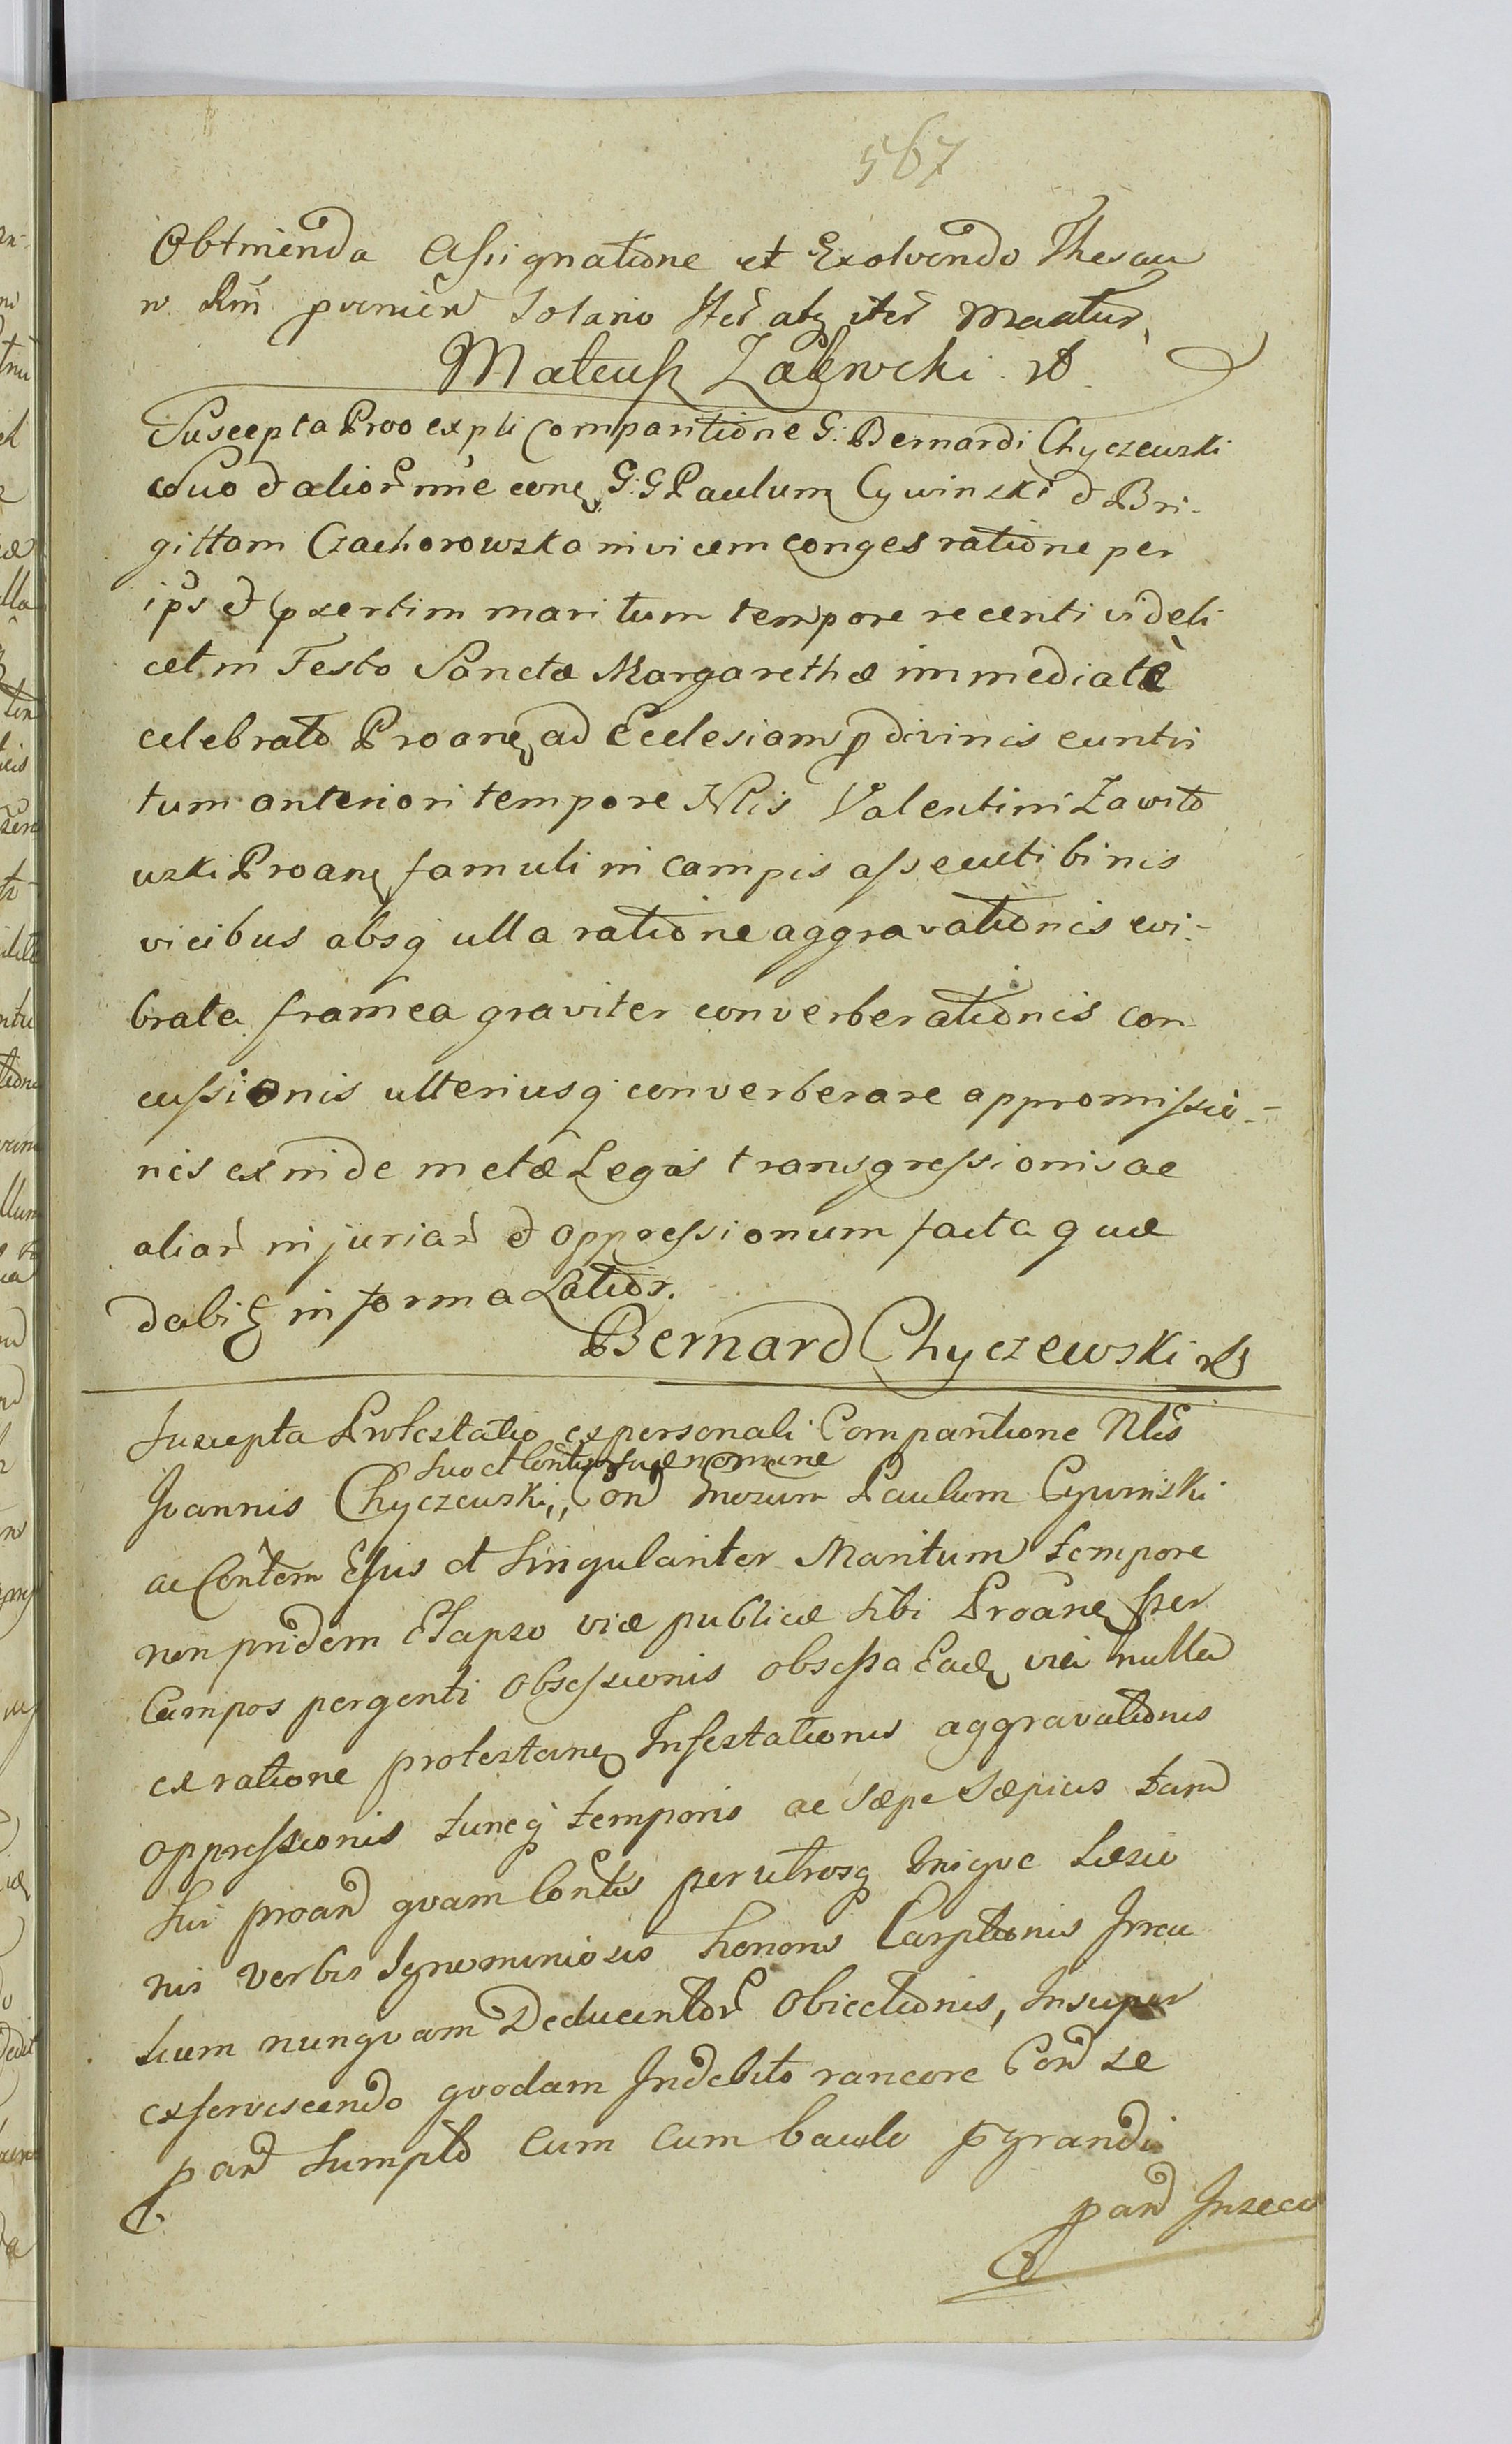 567
Obtinenda Assignatione et Exolvendo Thesau
ro Rni provenien Solario Iter atq iter Mactur
Mateusz Zalewski
Suscepta Proo ex pli Comparitione G: Bernardi Chyczewski
Suo et alior nne conq G:G Paulum Cywinski et Bri-
gittam Czachorowska invicem conges ratione per
ips et pxertim maritum tempore recenti videli
cet in Festo Sanctæ Margarethæ immediatè
celebrato Proanq ad Ecclesiam p divinis euntis
tum anteriori tempore Nlis Valentini Zawito
wski Proanq famuli in campis assecuti binis
vicibus absq ulla ratione aggravationis evi-
brata framea graviter converberationis con
cussionis ulteriusq converberare appromissio-
nis exinde metæ Legis transgressionis ac
aliar injuriar et oppressionum facta quæ
dabiq in forma Latior.
Bernard Chyczewski
Suscepta Protestatio ex personali Comparitione Nlis
suo et Contis suæ nomine
Joannis Chyczewski,, Con Gnosum Paulum Cywinski
ac Contem Ejus et Singulariter Maritum tempore
non pridem Elapso viæ publicæ sibi Proanq per
Campos pergenti Obsessionis obsessa Eadq via nulla
ex ratione protestanq Infestationis aggravationis
oppressionis tuncq temporis ac sæpe sæpius tam
sui proan quam Contis per utrosq Inique Læsio
nis verbis Ignominiosis honoris Carptionis Irrau
sium nunquam Deducentor Obiectionis, Insuper
exfervescendo quodam Indebito rancore Con se
pan Sumpto cum cum baculo pgrandi
pan Insecu